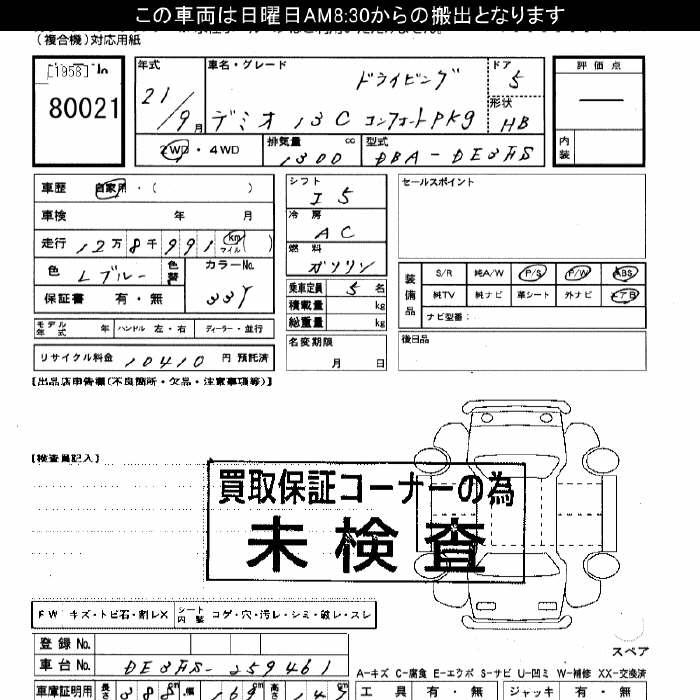 この車両は日曜日AM8:30からの搬出となります
(複合機)対応用紙
[1958] No.
80021
年式
21/9月
車名・グレード
ドライビング
デミオ 13C コンフォートPKg
ドア
5
形状
HB
2WD・4WD
排気量 cc
1300
型式
DBA-DE3FS
評価点
内装
車歴 自家用・( )
車検 年 月
走行 12万8千991 km マイル ( )
色 Lブルー 色替
カラーNo.
33Y
保証書 有・無
モデル年式 年 ハンドル 左・右 ディーラー・並行
リサイクル料金 10410 円 預託済
シフト
I5
冷房
AC
燃料
ガソリン
乗車定員 5 名
積載量 kg
総重量 kg
名変期限
月 日
セールスポイント
装備品
S/R 純A/W P/S P/W ABS
純TV 純ナビ 革シート 外ナビ エアB
ナビ型番:
後日品
【出品店申告欄(不良箇所・欠品・注意事項等)】
【検査員記入】
買取保証コーナーの為
未検査
FW キズ・トビ石・割レX シート内装 コゲ・穴・汚レ・シミ・破レ・スレ
スペア
登録No.
車台No. DE3FS-259461
A-キズ C-腐食 E-エクボ S-サビ U-凹ミ W-補修 XX-交換済
車庫証明用 長さ 388 cm 幅 169 cm 高さ 147 cm
工具 有・無 ジャッキ 有・無